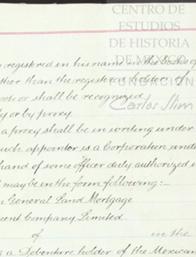 CENTRO DE
ESTUDIOS
DE HISTORIA
DE MÉXICO
Carlos Slim
registered in his name in the books of
other than the registered holder of
or shall be recognized
y or by proxy.
a proxy shall be in writing under
such appointor is a Corporation under
hand of some officer duly authorized
may be in the form following:—
General Land Mortgage
Company Limited
of in the
a Debenture holder of the Mexican